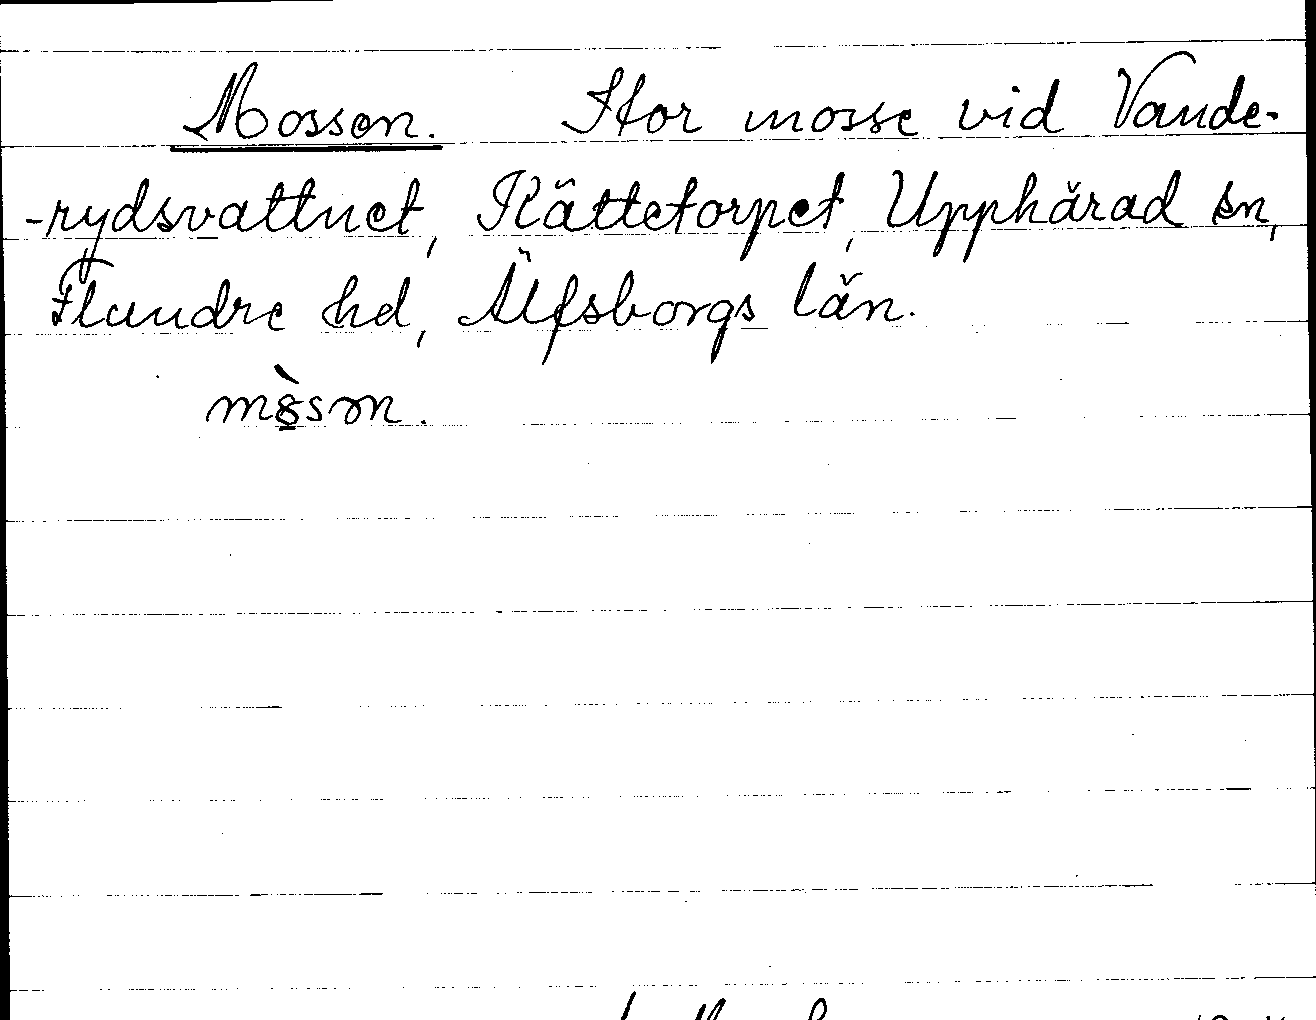 Mossen. Stor mosse vid Vande-
-rydsvattnet, Kättetorpet, Upphärad sn,
Flundre hd, Älfsborgs län.